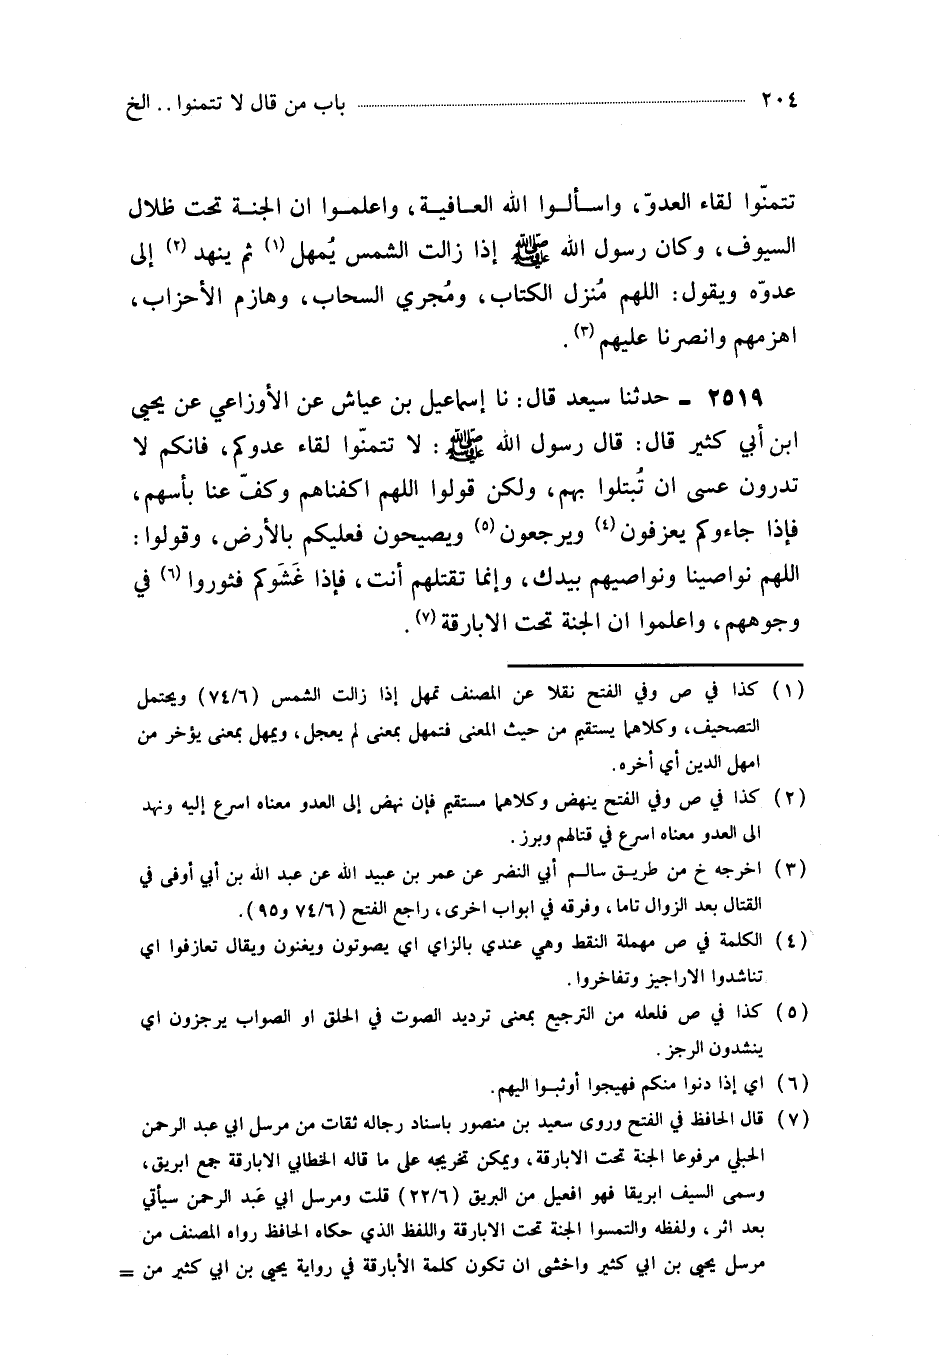 ٢٠٤ باب من قال لا تتمنوا .. الخ
تتمنّوا لقاء العدوّ، واسألوا الله العافية، واعلموا ان الجنة تحت ظلال
السيوف، وكان رسول الله ﷺ إذا زالت الشمس يُمهل (١) ثم ينهد (٢) إلى
عدوّه ويقول: اللهم مُنزل الكتاب، ومُجري السحاب، وهازم الأحزاب،
اهزمهم وانصرنا عليهم (٣).
٢٥١٩ ـ حدثنا سيعد قال: نا إسماعيل بن عياش عن الأوزاعي عن يحيى
ابن أبي كثير قال: قال رسول الله ﷺ: لا تتمنّوا لقاء عدوكم، فانكم لا
تدرون عسى ان تُبتلوا بهم، ولكن قولوا اللهم اكفناهم وكفّ عنا بأسهم،
فإذا جاءوكم يعزفون (٤) ويرجعون (٥) ويصيحون فعليكم بالأرض، وقولوا:
اللهم نواصينا ونواصيهم بيدك، وإنما تقتلهم أنت، فإذا غَشَوكم فثوروا (٦) في
وجوههم، واعلموا ان الجنة تحت الابارقة (٧).
(١) كذا في ص وفي الفتح نقلا عن المصنف تمهل إذا زالت الشمس (٧٤/٦) ويحتمل
التصحيف، وكلاهما يستقيم من حيث المعنى فتمهل بمعنى لم يعجل، ويمهل بمعنى يؤخر من
امهل الدين أي أخره.
(٢) كذا في ص وفي الفتح ينهض وكلاهما مستقيم فإن نهض إلى العدو معناه اسرع إليه ونهد
الى العدو معناه اسرع في قتالهم وبرز.
(٣) اخرجه خ من طريق سالم أبي النضر عن عمر بن عبيد الله عن عبد الله بن أبي أوفى في
القتال بعد الزوال تاما، وفرقه في ابواب اخرى، راجع الفتح (٧٤/٦ و٩٥).
(٤) الكلمة في ص مهملة النقط وهي عندي بالزاي اي يصوتون ويغنون ويقال تعازفوا اي
تناشدوا الاراجيز وتفاخروا.
(٥) كذا في ص فلعله من الترجيع بمعنى ترديد الصوت في الحلق او الصواب يرجزون اي
ينشدون الرجز.
(٦) اي إذا دنوا منكم فهيجوا أوثبوا اليهم.
(٧) قال الحافظ في الفتح وروى سعيد بن منصور باسناد رجاله ثقات من مرسل ابي عبد الرحمن
الحبلي مرفوعا الجنة تحت الابارقة، ويمكن تخريجه على ما قاله الخطابي الابارقة جمع ابريق،
وسمى السيف ابريقا فهو افعيل من البريق (٢٢/٦) قلت ومرسل ابي عبد الرحمن سيأتي
بعد اثر، ولفظه والتمسوا الجنة تحت الابارقة واللفظ الذي حكاه الحافظ رواه المصنف من
مرسل يحيى بن ابي كثير واخشى ان تكون كلمة الأبارقة في رواية يحيى بن ابي كثير من =